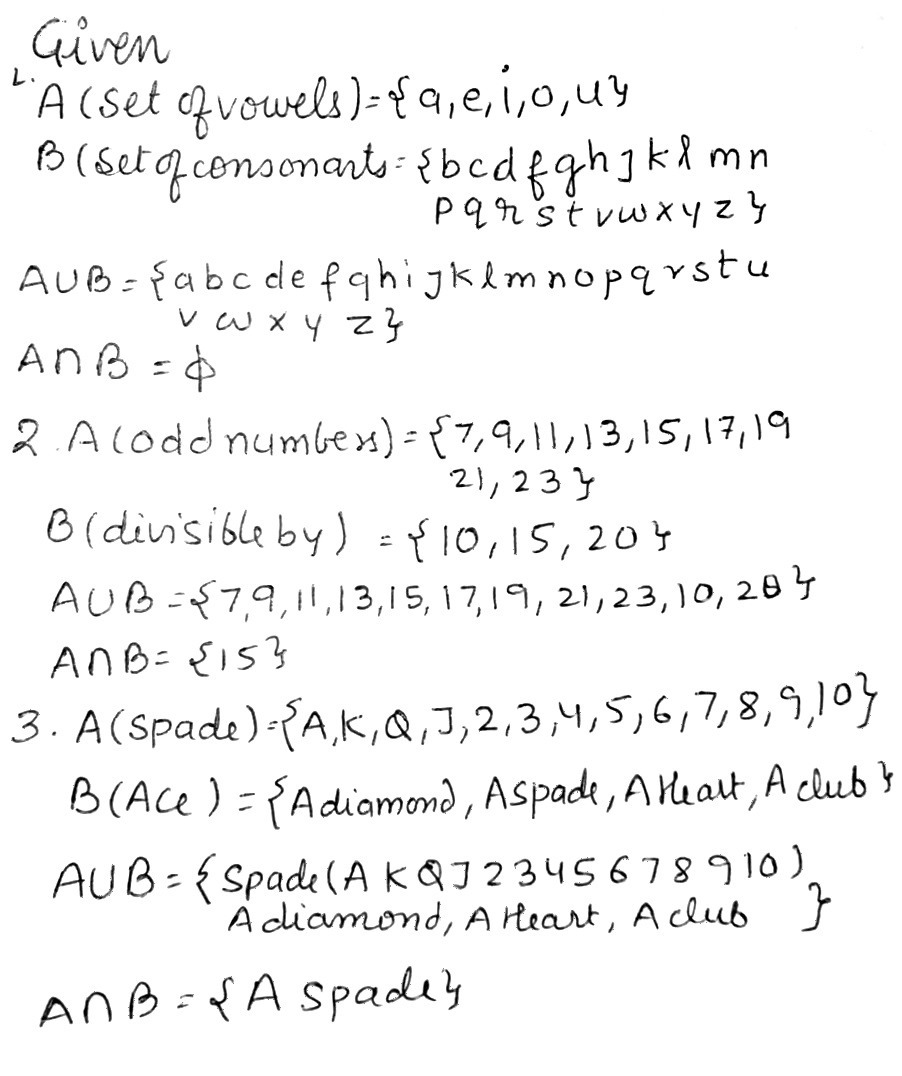 Given
1. A (set of vowels) = {a, e, i, o, u}
B (set of consonants = {b c d f g h j k l m n
p q r s t v w x y z}
A∪B = {a b c d e f g h i j k l m n o p q r s t u
v w x y z}
A∩B = ϕ
2. A (odd numbers) = {7, 9, 11, 13, 15, 17, 19
21, 23}
B (divisible by) = {10, 15, 20}
A∪B = {7, 9, 11, 13, 15, 17, 19, 21, 23, 10, 20}
A∩B = {15}
3. A (spade) = {A, K, Q, J, 2, 3, 4, 5, 6, 7, 8, 9, 10}
B (Ace) = {A diamond, A spade, A Heart, A club}
A∪B = {spade (A K Q J 2 3 4 5 6 7 8 9 10),
A diamond, A Heart, A club }
A∩B = {A spade}